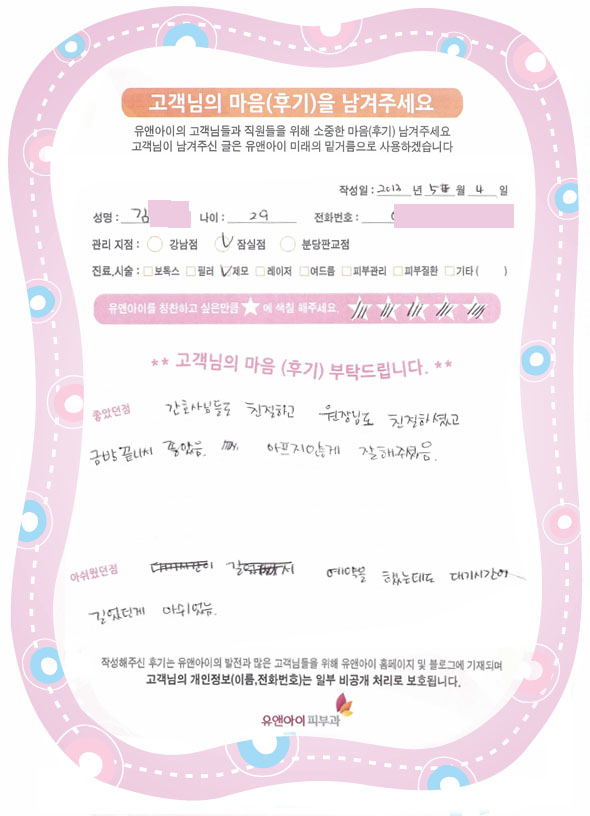 고객님의 마음(후기)을 남겨주세요
유앤아이의 고객님들과 직원들을 위해 소중한 마음(후기) 남겨주세요
고객님이 남겨주신 글은 유앤아이 미래의 밑거름으로 사용하겠습니다
작성일 : 2013 년 5 월 4 일
성명 : 김 나이 : 29 전화번호 :
관리 지점 : 강남점 잠실점 분당판교점
진료,시술 : 보톡스 필러 제모 레이저 여드름 피부관리 피부질환 기타 ( )
유앤아이를 칭찬하고 싶은만큼 ★에 색칠 해주세요.
** 고객님의 마음 (후기) 부탁드립니다. **
좋았던점 간호사님들도 친절하고 원장님도 친절하셨고
금방 끝나서 좋았음. 아프지않게 잘해주셨음.
아쉬웠던점 예약을 했는데도 대기시간이
길었던게 아쉬웠음.
작성해주신 후기는 유앤아이의 발전과 많은 고객님들을 위해 유앤아이 홈페이지 및 블로그에 기재되며
고객님의 개인정보(이름,전화번호)는 일부 비공개 처리로 보호됩니다.
유앤아이피부과